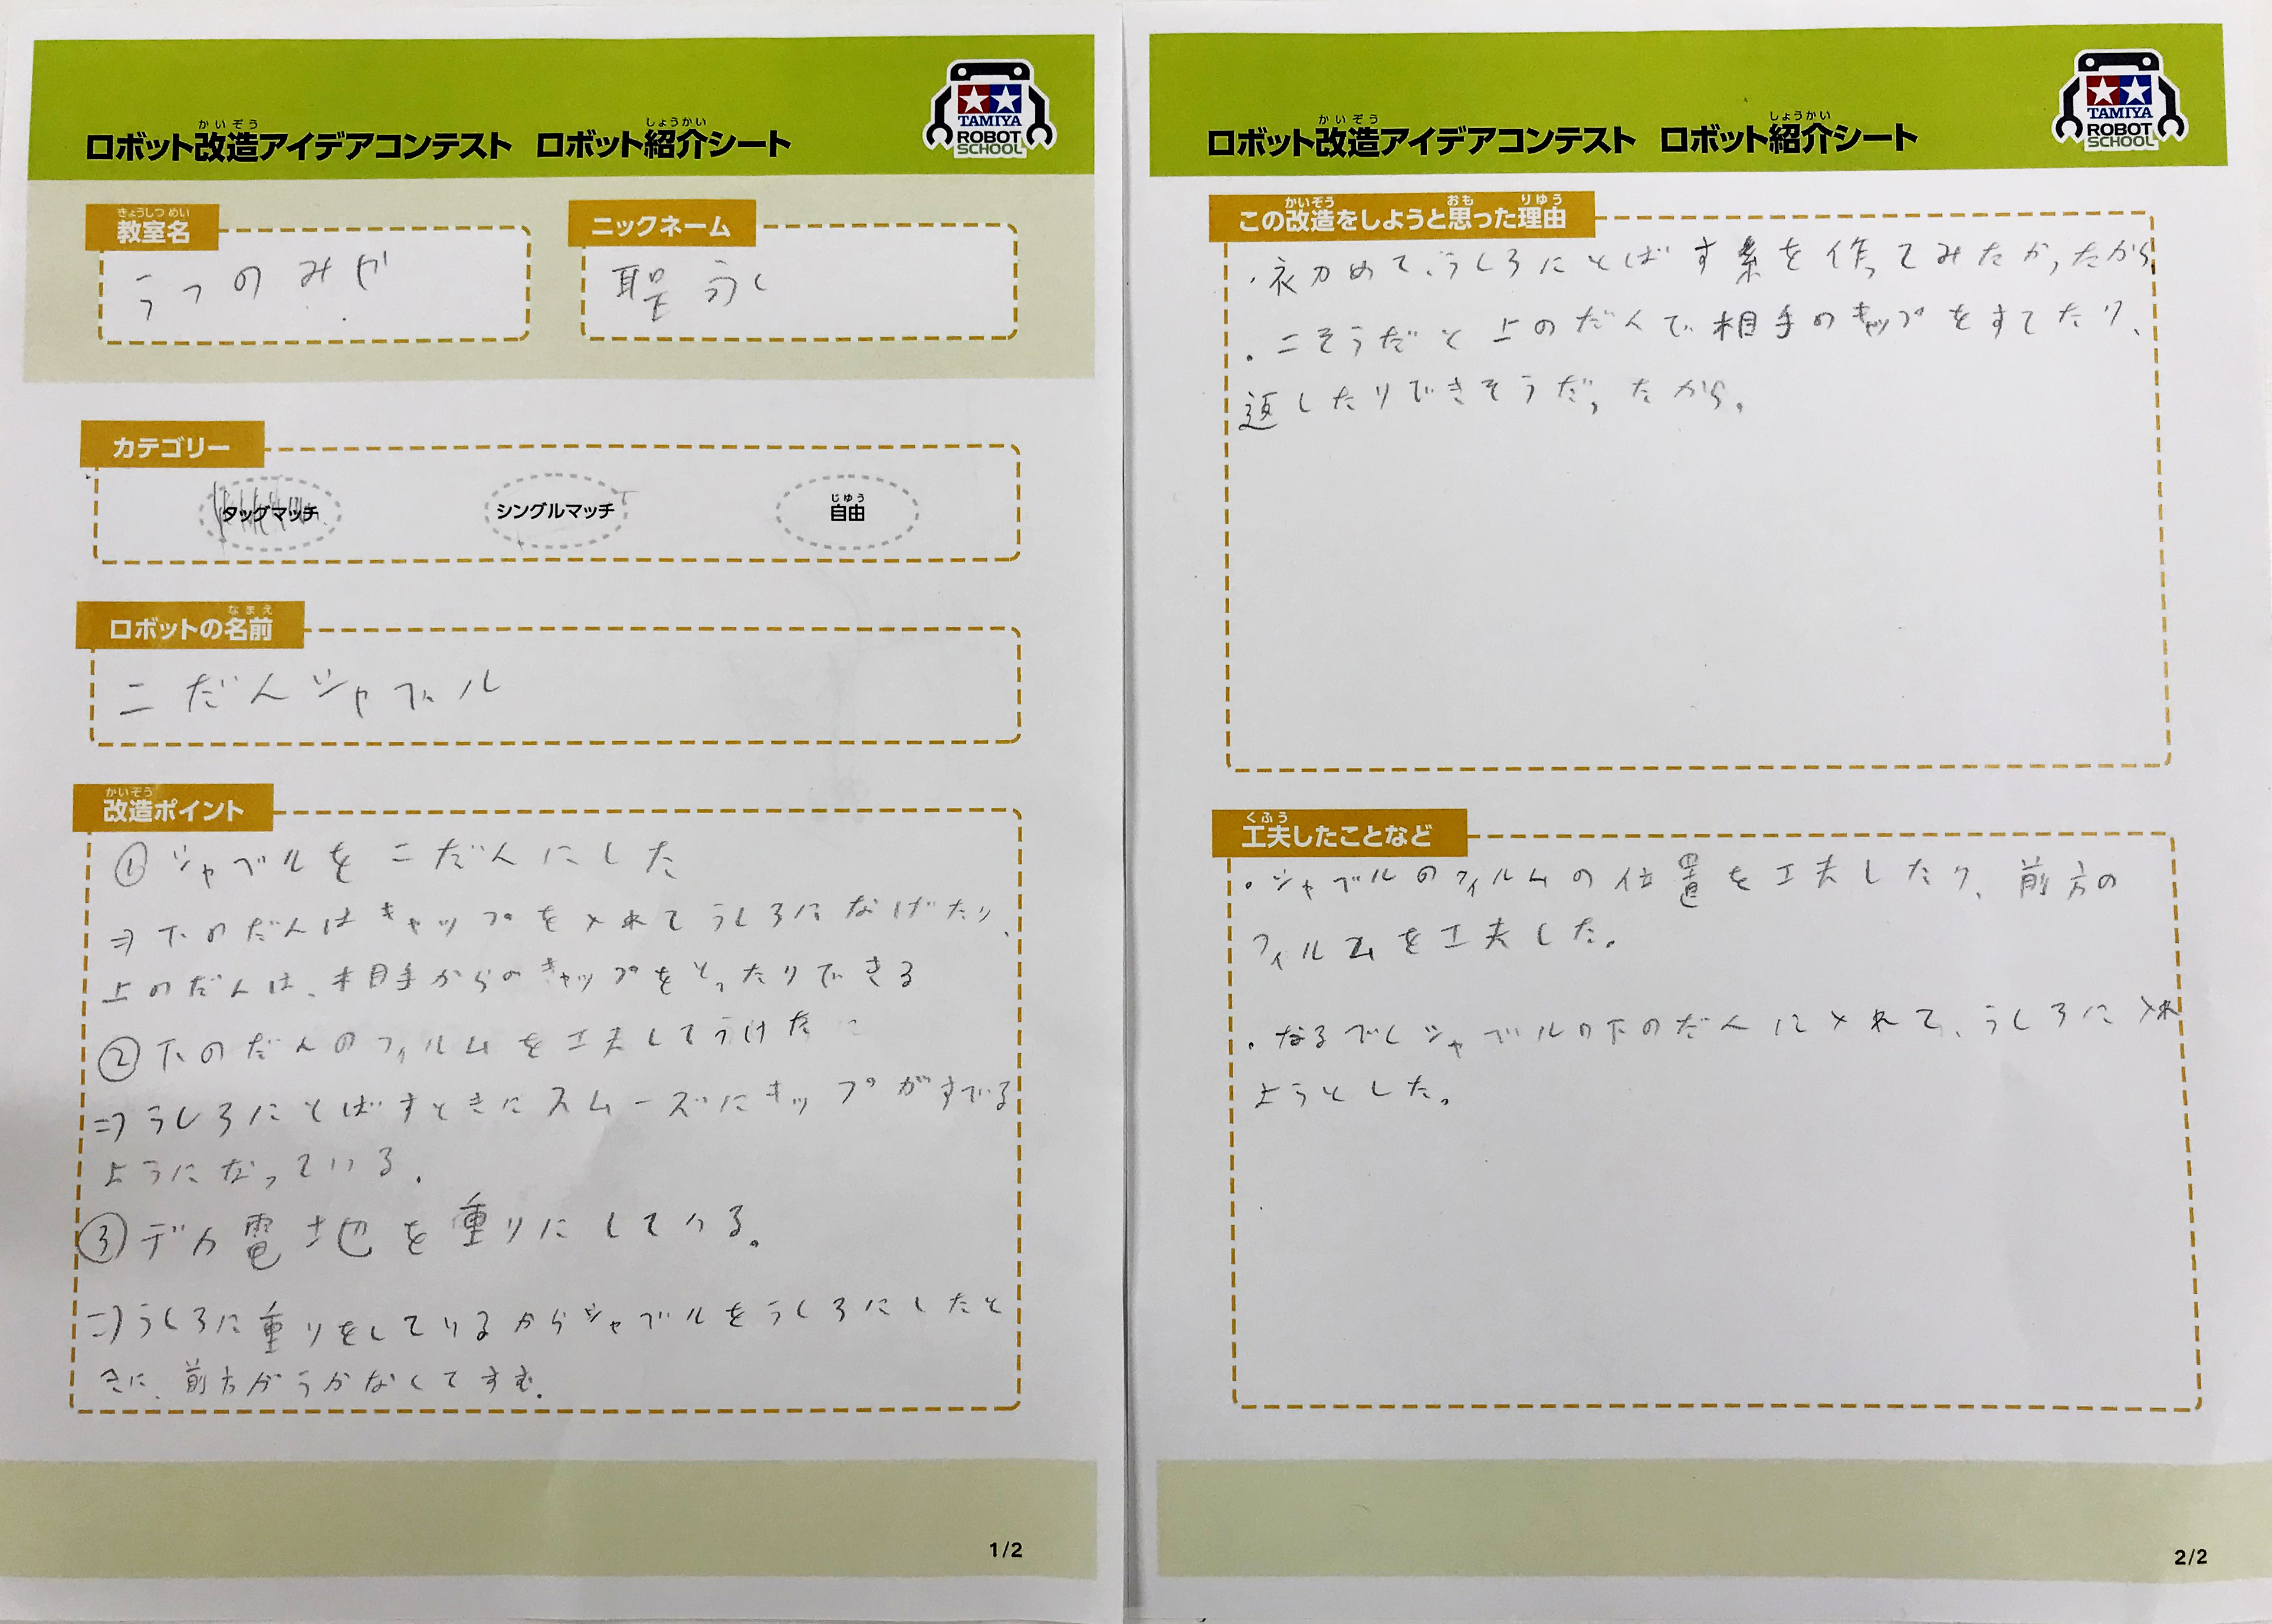 ロボット改造アイデアコンテスト ロボット紹介シート
かいぞう
しょうかい
TAMIYA
ROBOT
SCHOOL
教室名
きょうしつ めい
うつのみや
ニックネーム
カテゴリー
タッグマッチ
シングルマッチ
自由
じゆう
ロボットの名前
なまえ
二だんシャベル
改造ポイント
かいぞう
① シャベルを二だんにした
⇒下のだんはキャップを入れてうしろになげたり、
上のだんは、相手からのキャップをとったりできる
②下のだんのフィルムを工夫してうけた
⇒うしろにとばすときにスムーズにキップがすべる
ようになっている。
③デカ電地を重りにしている。
⇒うしろに重りをしているからシャベルをうしろにしたと
きに、前方がうかなくてすむ.
1/2
ロボット改造アイデアコンテスト ロボット紹介シート
かいぞう
しょうかい
TAMIYA
ROBOT
SCHOOL
この改造をしようと思った理由
かいぞう
おも
りゆう
・ めて、うしろにとばす を作ってみたかったから
・二そうだと上のだんで相手のキャップをすてたり、
返したりできそうだったから。
工夫したことなど
くふう
・シャベルのフィルムの位置を工夫したり、前方の
フィルムを工夫した。
・なるべくシャベルの下のだんに入れて、うしろに入れ
ようとした。
2/2